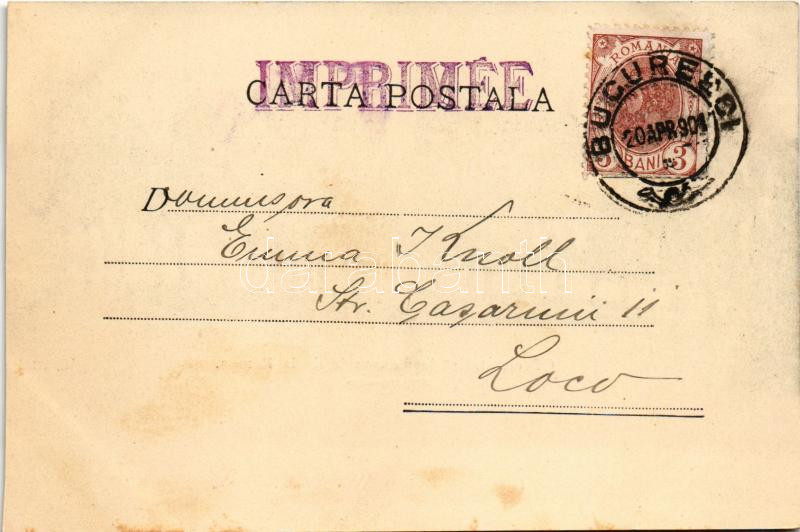 IMPRIMÉE
CARTA POSTALA
ROMANIA
BUCURESCI
20 APR 901
3 BANI 3
Domnisora
Emma Knoll
Str. Casarmii 11
Loco
darabanth